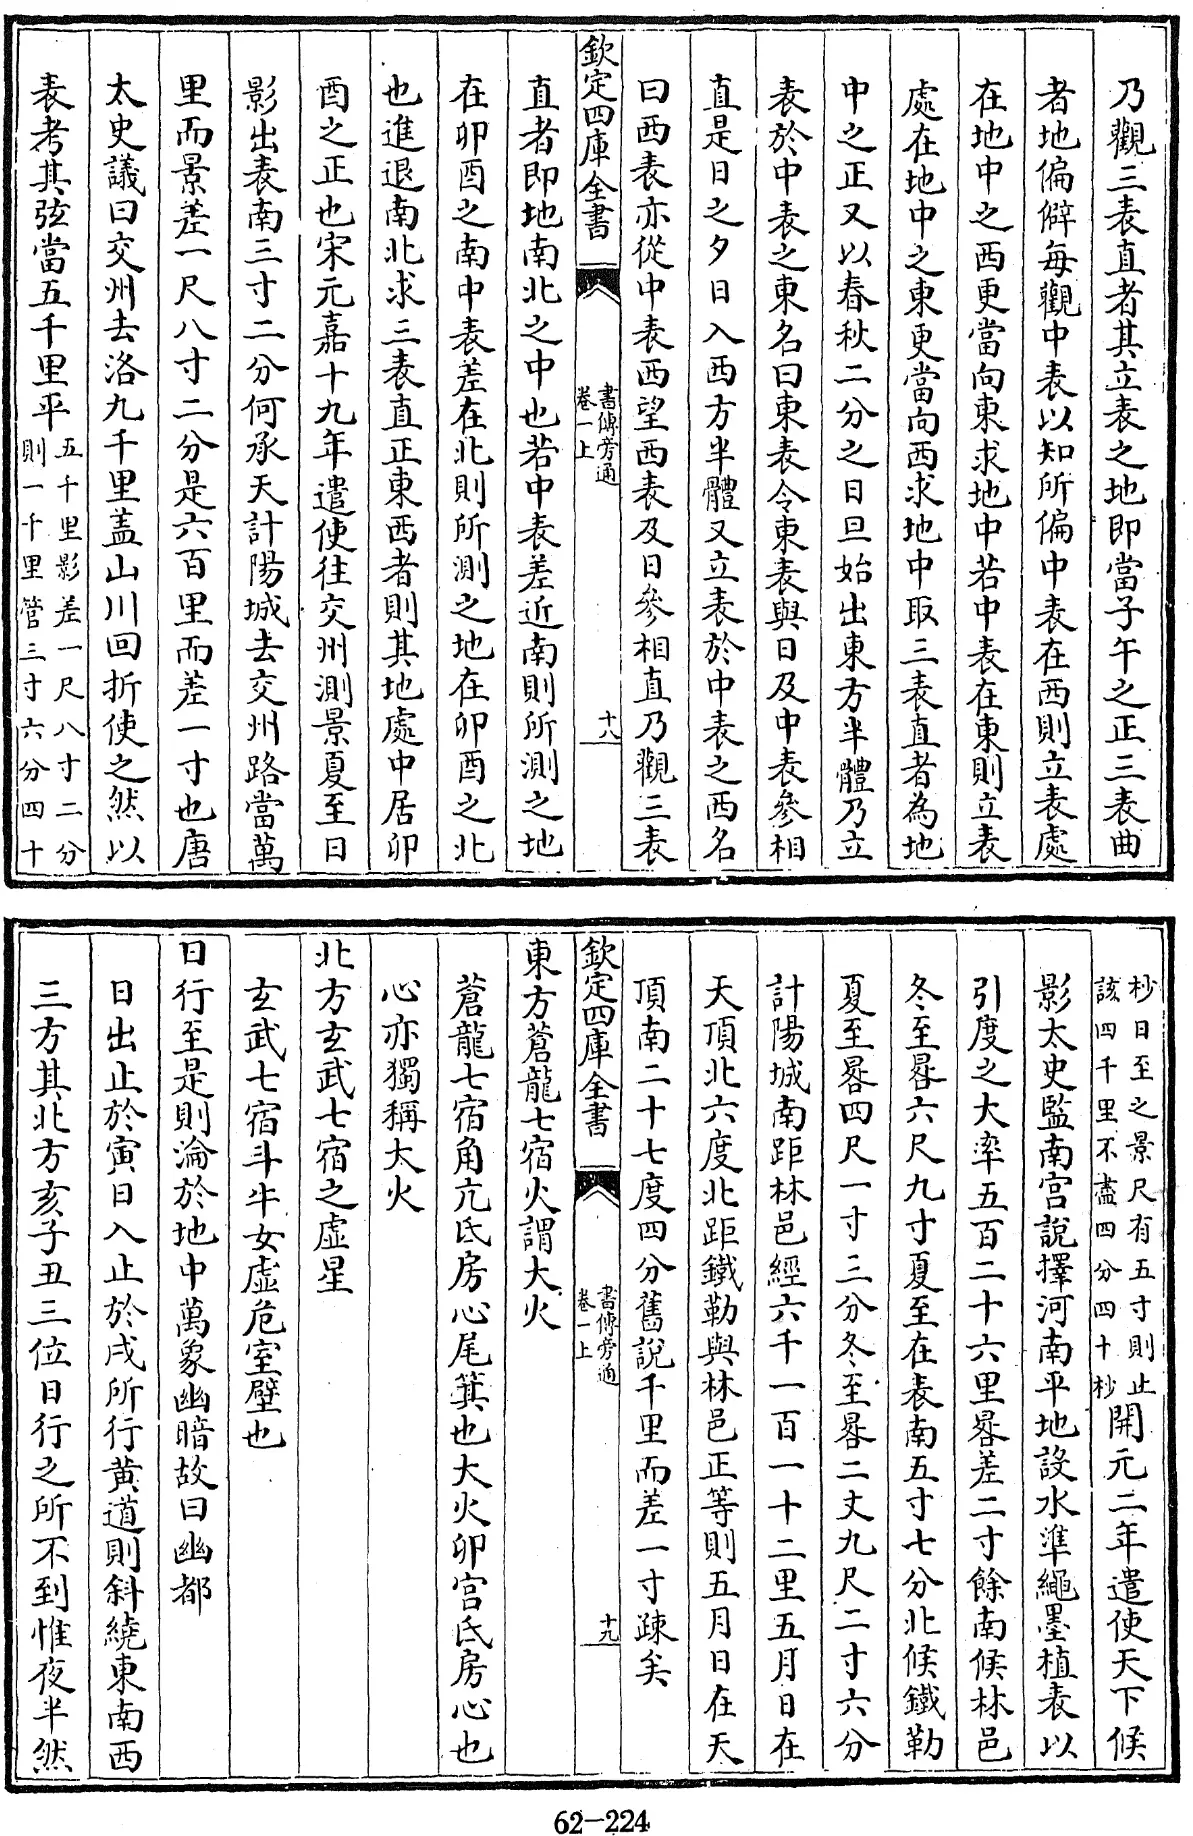 乃觀三表直者其立表之地即當子午之正三表曲
者地偏僻每觀中表以知所偏中表在西則立表處
在地中之西更當向東求地中若中表在東則立表
處在地中之東更當向西求地中取三表直者為地
中之正又以春秋二分之日旦始出東方半體乃立
表於中表之東名曰東表令東表與日及中表參相
直是日之夕日入西方半體又立表於中表之西名
曰西表亦從中表西望西表及日參相直乃觀三表
欽定四庫全書
書傳旁通
卷一上
十八
直者即地南北之中也若中表差近南則所測之地
在卯酉之南中表差在北則所測之地在卯酉之北
也進退南北求三表直正東西者則其地處中居卯
酉之正也宋元嘉十九年遣使往交州測景夏至日
影出表南三寸二分何承天計陽城去交州路當萬
里而景差一尺八寸二分是六百里而差一寸也唐
太史議曰交州去洛九千里蓋山川回折使之然以
表考其弦當五千里平
五千里影差一尺八寸二分
則一千里管三寸六分四十
杪日至之景尺有五寸則止
該四千里不盡四分四十杪
開元二年遣使天下候
影太史監南宫說擇河南平地設水準繩墨植表以
引度之大率五百二十六里晷差二寸餘南候林邑
冬至晷六尺九寸夏至在表南五寸七分北候鐵勒
夏至晷四尺一寸三分冬至晷二丈九尺二寸六分
計陽城南距林邑經六千一百一十二里五月日在
天頂北六度北距鐵勒與林邑正等則五月日在天
頂南二十七度四分舊說千里而差一寸疎矣
欽定四庫全書
書傳旁通
卷一上
十九
東方蒼龍七宿火謂大火
蒼龍七宿角亢氐房心尾箕也大火卯宫氐房心也
心亦獨稱大火
北方玄武七宿之虛星
玄武七宿斗牛女虛危室壁也
日行至是則淪於地中萬象幽暗故曰幽都
日出止於寅日入止於戌所行黄道則斜繞東南西
三方其北方亥子丑三位日行之所不到惟夜半然
62-224